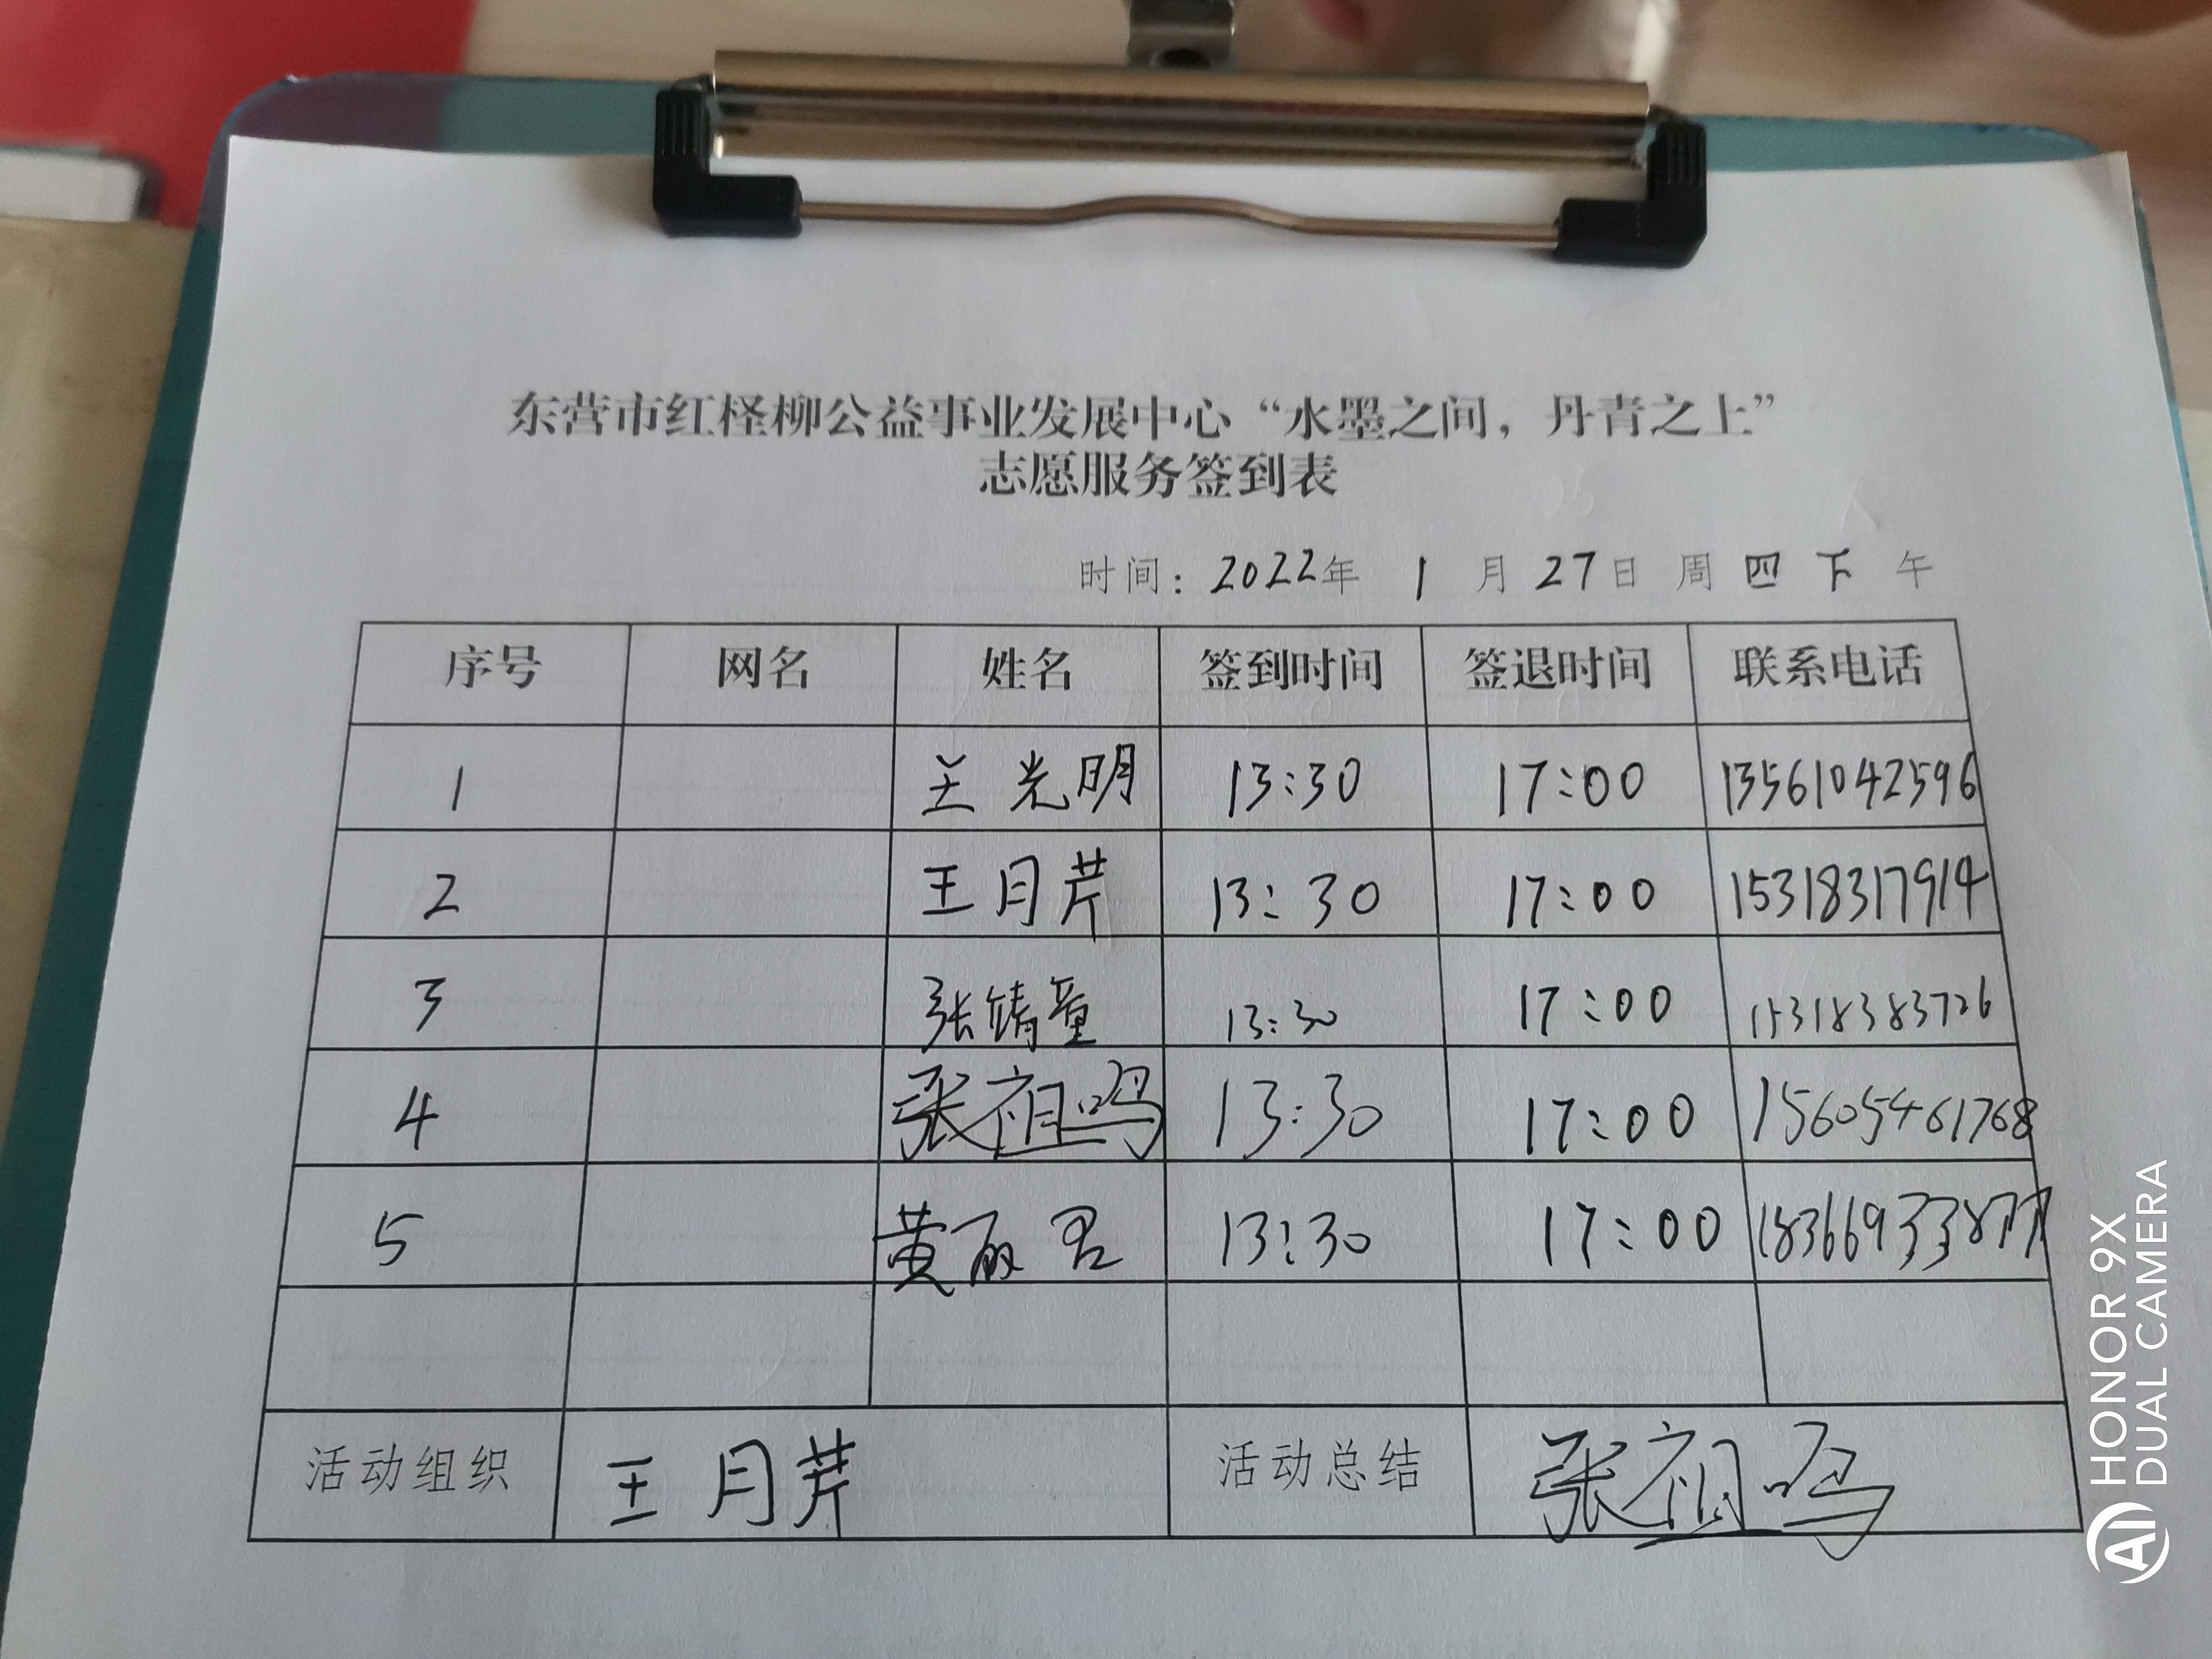 东营市红柽柳公益事业发展中心“水墨之间，丹青之上”
志愿服务签到表
时间：2022年 1 月 27日 周 四 下 午
序号 网名 姓名 签到时间 签退时间 联系电话
1 王光明 13:30 17:00 13561042596
2 王月芹 13:30 17:00 15318317914
3 张婧童 13:30 17:00 15318383726
4 张祖鸣 13:30 17:00 15605461768
5 黄丽君 13:30 17:00 18366933877
活动组织 王月芹 活动总结 张祖鸣
HONOR 9X
AI DUAL CAMERA